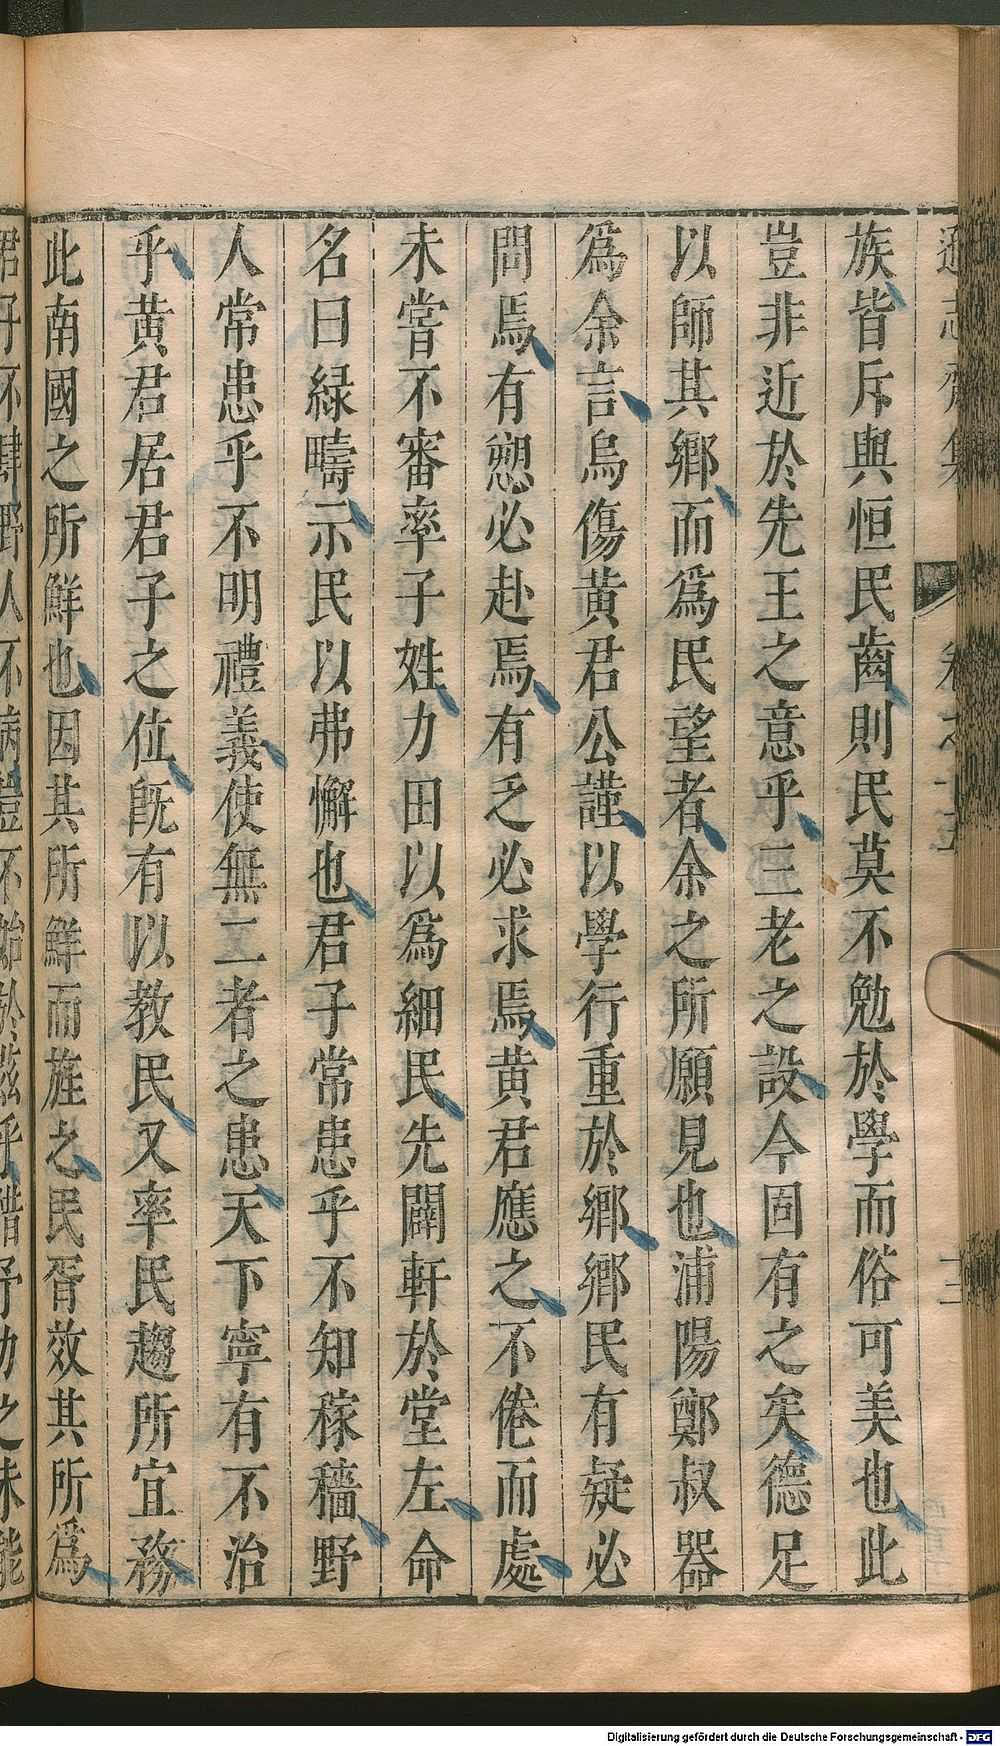 族皆斥與恒民齒則民莫不勉於學而俗可美也此
豈非近於先王之意乎三老之設今固有之矣德足
以師其鄉而爲民望者余之所願見也浦陽鄭叔器
爲余言烏傷黃君公謹以學行重於鄉鄉民有疑必
問焉有愬必赴焉有乏必求焉黃君應之不倦而處
未甞不審率子姓力田以爲細民先闢軒於堂左命
名曰緑疇示民以弗懈也君子常患乎不知稼穡野
人常患乎不明禮義使無二者之患天下寧有不治
乎黃君居君子之位旣有以教民又率民趨所宜務
此南國之所鮮也因其所鮮而旌之民胥效其所爲
Digitalisierung gefördert durch die Deutsche Forschungsgemeinschaft - DFG